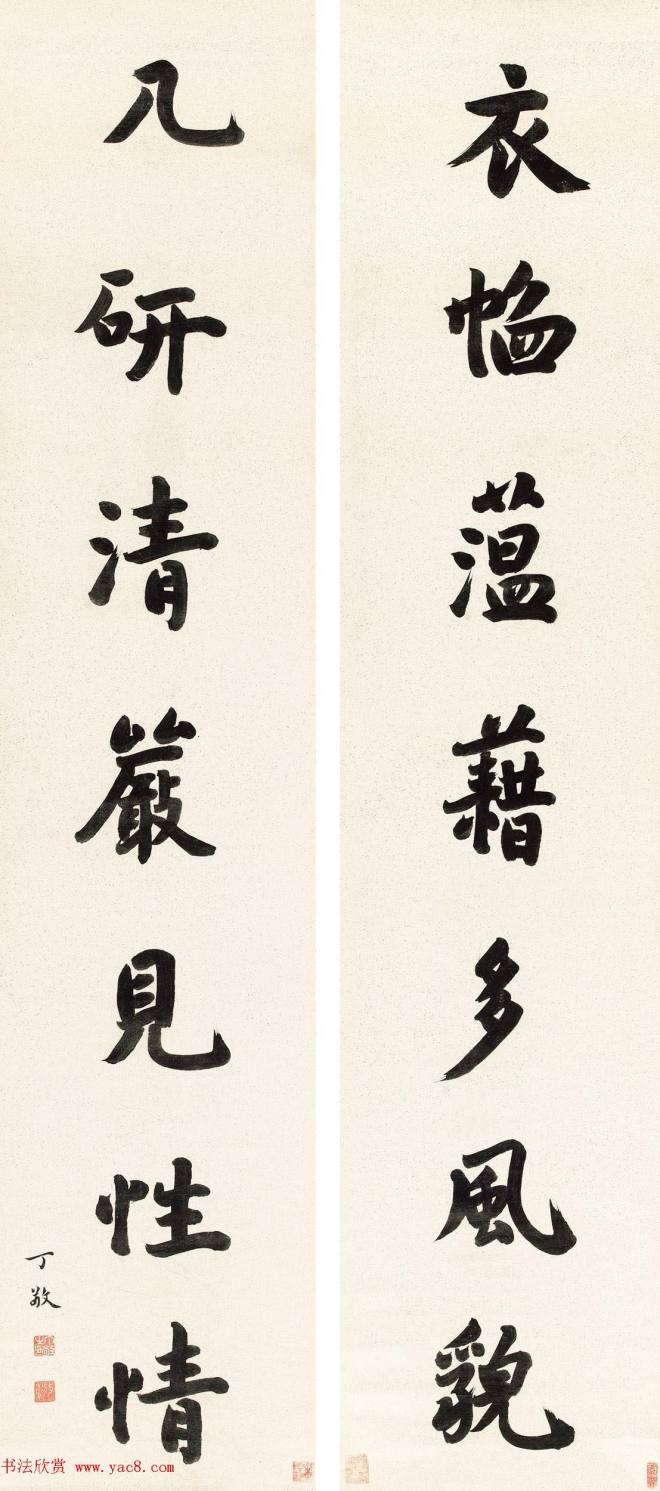 衣恤薀藉多風貌
几研清嚴見性情
丁敬
书法欣赏 www.yac8.com